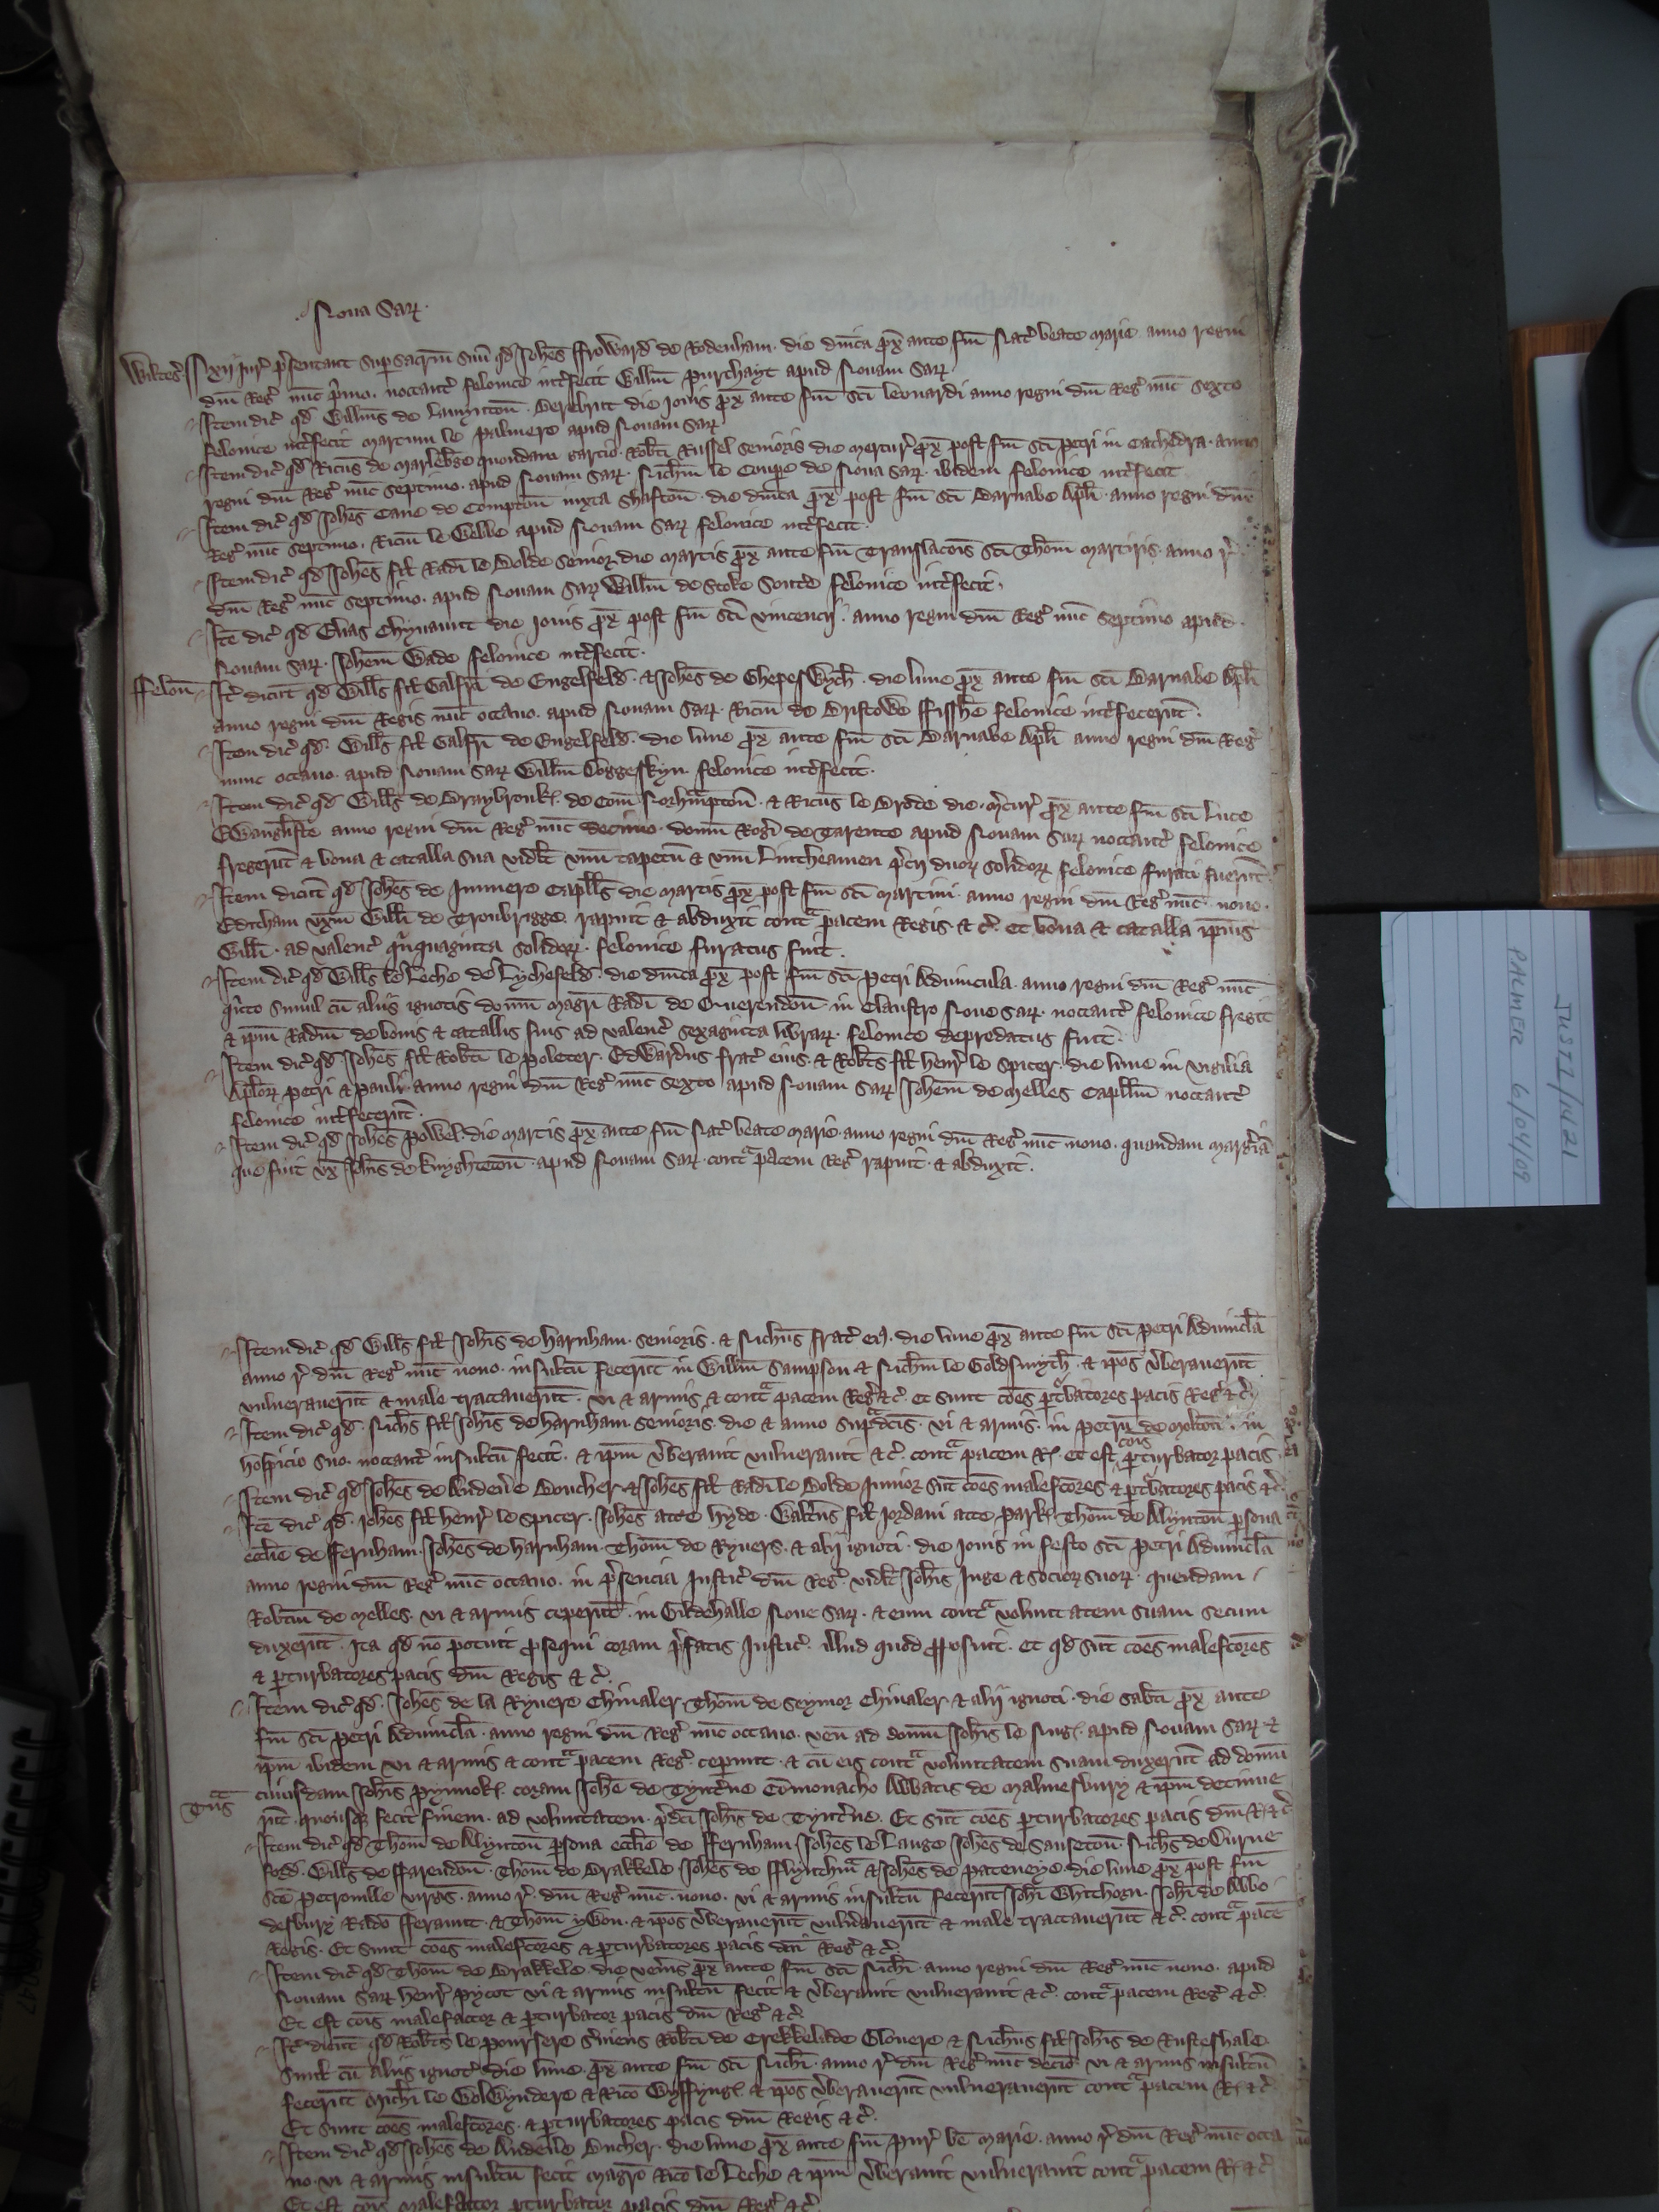 Noua Sar̃
Wiltes' xij Iur' p'sentant sup sacr̃m suũ qd Ioh̃es Froward de Rodenham die dñica px̃ ante fm̃ Nat' beate marie anno regni
dñi Reg' nũc p'mo noctant' felonice int'fecit Will̃m purchayt apud Nouam Sar̃
Item dic' qd Will̃ms de Lauynton Berebrut die Iouis px̃ ante fm̃ Sc̃i Leonardi anno regni dñi Reg' nũc sexto
felonice int'fecit martinu le palmere apud Nouam Sar̃
Item dic' qd Ric̃us de marleb'ge quondam garcio Rob̃ti Russel senioris die mercur' px̃ post fm̃ sc̃i petri in Cathedra anno
regni dñi Reg' nũc septimo apud Nouam Sar̃ Nich̃m le Coupe de Noua Sar̃ ibidem felonice int'fecit
Item dic' qd Ioh̃es Cane de Compton iuxta Shafton die dñica px̃ post fm̃ sc̃i Barnabe Apl̃i anno regni dñi
Reg' nũc septimo Ric̃m le Webbe apud Nouam Sar̃ felonice int'fecit
Item dic' qd Ioh̃es fil' Rad̃i le Bolde senior die martis px̃ ante fm̃ Translac̃ois sc̃i Thom̃ martiris anno r'
dñi Reg' nũc septimo apud Nouam Sar̃ Will̃m de Stoke felonice int'fecit
Itẽ dic' qd Elias Chynauut die Iouis px̃ post fm̃ sc̃i vincencij anno regni dñi Reg' nũc septimo apud
Nouam Sar̃ Ioh̃em Wade felonice int'fecit
Felon̄ It' dicũt qd Will̃s fil' Galfr̃i de Engelfeld & Ioh̃es de ChepesWych die lune px̃ ante fm̃ sc̃i Barnabe Apl̃i
anno regni dñi Regis nũc octauo apud Nouam Sar̃ Ric̃m de BristoWe Fisshe felonice int'fecerũt
Item dic' qd Will̃s fil' Galfr̃i de Engelfeld die lune px̃ ante fm̃ sc̃i Barnabe Apl̃i anno regni dñi Reg'
nunc octauo apud Nouam Sar̃ Will̃m Doggeskyn felonice int'fecit
Item dic' qd Will̃s de Braybrouk de Com̃ Norh̃mpton & Ric̃us le Brode die m'cur' px̃ ante fm̃ sc̃i Luce
EWanglĩste anno regni dñi Reg' nũc decimo domũ Rog̃i de Tarente apud Nouam Sar̃ noctant' felonice
fregerũt & bona & catalla sua vidl̃t vnũ tapetũ & vnũ Lintheamen p'cij duor̃ solidor̃ felonice furati fuerũt
Item dicũt qd Ioh̃es de Iumere Capll̃s die martis px̃ post fm̃ sc̃i martini anno regni dñi Reg' nũc nono
Editham vx̃m Will̃i de Troubrigge rapuit & abduxit cont'a pacem Regis & c' et bona & catalla ip̃ius
Will̃i ad valenc' qu'nquaginta solidor̃ felonice furatus fuit
Item dic' qd Will̃s le Leche de Lychefeld die dñica px̃ post fm̃ sc̃i petri Aduincula anno regni dñi Reg' nũc
q'nto simul cũ alijs ignotis domũ magr̃i Rad̃i de Querendon in Claustro Noue Sar̃ noctant' felonice fregit
& ip̃m Rad̃m de bonis & catallis suis ad valenc' sexaginta librar̃ felonice depredatus fuit
Item dic' qd Ioh̃es fil' Rob̃ti le poleter Edwardus frat' eius & Rob̃ts fil' henr' le Spicer die lune in vigilia
Apl̃or̃ petri & pauli anno regni dñi Reg' nũc sexto apud Nouam Sar̃ Ioh̃em de melles Capll̃m noctant'
felonice int'fecerũt
Item dic' qd Ioh̃es poWel die martis px̃ ante fm̃ Nat' beate marie anno regni dñi Reg' nũc nono quandam marg'iã
que fuit vx̃ Ioh̃is de knyghteton apud Nouam Sar̃ cont'a pacem Reg' rapuit & abduxit
Item dic' qd Will̃s fil' Ioh̃is de harnham senioris & Nich̃us frat' eiꝰ die lune px̃ ante fm̃ sc̃i petri Aduincl̃a
anno r' dñi Reg' nũc nono insultũ fecerũt in Will̃m Sampson & Nich̃m le Goldsmyth & ip̃os v'berauerũt
vulnerauerũt & male tractauerũt vi & armis & cont'a pacem Reg' & c' et sunt cões pt'batores pacis Reg' & c'
Item dic' qd Nich̃s fil' Ioh̃is de harnham senioris die & anno sup'dc̃is vi & armis in petrũ de molton in
hospicio suo noctant' insultũ fecit & ip̃m v'berauit vulnerauit & c' cont'a pacem R' et est cõis pturbator pacis
Item dic' qd Ioh̃es de Andeu'e Boucher & Ioh̃es fil' Rad̃i le Bolde Iunior sũt cões malefc̃ores & pt'batores pacis & c'
Itẽ dic' qd Ioh̃es fil' henr' le Spicer Ioh̃es atte hyde Walt'us fil' Iordani atte park Thom̃ de Alynton psona
ecclie de Fernham Ioh̃es de harnham Thom̃ de Ryuers & alij ignoti die Iouis in festo sc̃i petri Aduincl̃a
anno regni dñi Reg' nũc octauo in p'sencia Iustic' dñi Reg' vidl̃t Ioh̃is Inge & socior̃ suor̃ quendam
Rob̃tum de melles vi & armis ceperũt in Gildehalle Noue Sar̃ & eum cont'a voluntatem suam secum
duxerũt Ita qd nõ potuit prosequi coram p'fatis Iustic' illud quod pposuit et qd sũt cões malefc̃ores
& pturbatores pacis dñi Regis & c'
Item dic' qd Ioh̃es de la Ryuere Chiualer Thom̃ de Seymor Chiualer & alij ignoti die sab̃ti px̃ ante
fm̃ sc̃i petri Aduincl̃a anno regni dñi Reg' nũc octauo ven̄ ad domũ Ioh̃is le apud Nouam Sar̃ &
ip̃m ibidem vi & armis & cont'a pacem Reg' ceperunt & cũ eis cont'a voluntatem suam duxerũt ad domũ
cuiusdam Ioh̃is pynnok coram Ioh̃e de Tynt'ne Cõmonacho Abbatis de malmesbury & ip̃m detinue
Tñs rũt quousq fecit finem ad voluntatem p'dc̃i Ioh̃is de Tynt'ne Et sũt cões pturbatores pacis dñi R' & c'
Item dic' qd Thom̃ de Alynton psona ecclie de Fernham Ioh̃es le Lange Ioh̃es de Sauseton Nich̃s de Durne
ford Will̃s de Farendon Thom̃ de Brakkele Ioh̃es de Flynthm̃ & Ioh̃es de pateneye die lune px̃ post fm̃
sc̃e petronille virg̃is anno r' dñi Reg' nũc nono vi & armis insultũ fecerũt Ioh̃i Whithorn Ioh̃i de Abbo
desbury Rado Feraunt & Thom̃ yWon & ip̃os v'berauerũt vuln'auerũt & male tractauerũt & c' cont'a pacẽ
Regis Et sunt cões malefc̃ores & pturbatores pacis dñi Reg' & c'
Item dic' qd Thom̃ de Brakkele die ven'is px̃ ante fm̃ sc̃i Mich̃i anno regni dñi Reg' nũc nono apud
Nouam Sar̃ henr' pycot vi & armis insultũ fecit & v'berauit vulnerauit & c' cont'a pacem Reg' & c'
Et est cõis malefactor & pturbator pacis dñi Reg' & c'
It' dicũt qd Rob̃ts le poursere s'uiens Rob̃ti de Crekkelade Glouere & Nich̃us fil' Ioh̃is de Rusteshale
simul cũ alijs ignot' die lune px̃ ante fm̃ sc̃i Mich̃i anno r' dñi Reg' nũc decĩo vi & armis insultũ
fecerũt Mich̃i le GolWyndere & Ric̃o Wyssyng & ip̃os v'berauerũt vulnerauerũt cont'a pacem R' & c'
Et sunt cões malefc̃ores & pturbatores pacis dñi Regis & c'
Item dic' qd Ioh̃es de Andeu'e Bucher die lune px̃ ante fm̃ pur' be marie anno r' dñi Reg' nũc octa
no vi & armis insultũ fecit magr̃o Ric̃o le Leche & ip̃m v'berauit vulnerauit cont'a pacem R' & c'
Et est cõis malefactor pturbator pacis dñi Reg' & c'
JUST1/1421
PALMER 6/04/09